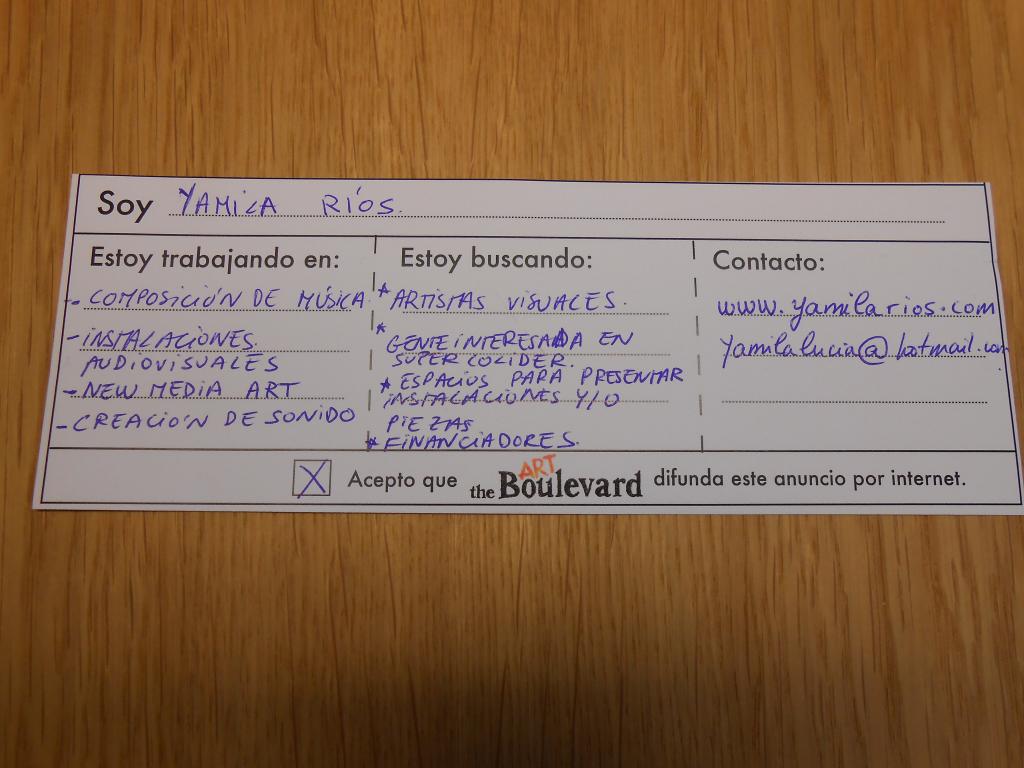 Soy YAMILA RÍOS.
Estoy trabajando en:
- COMPOSICIÓN DE MÚSICA
- INSTALACIONES
AUDIOVISUALES
- NEW MEDIA ART
- CREACIÓN DE SONIDO
Estoy buscando:
* ARTISTAS VISUALES.
* GENTE INTERESADA EN
SUPER COLIDER.
* ESPACIOS PARA PRESENTAR
INSTALACIONES Y/O
PIEZAS
* FINANCIADORES.
Contacto:
www.yamilarios.com
yamilalucia@hotmail.com
X Acepto que the ART Boulevard difunda este anuncio por internet.